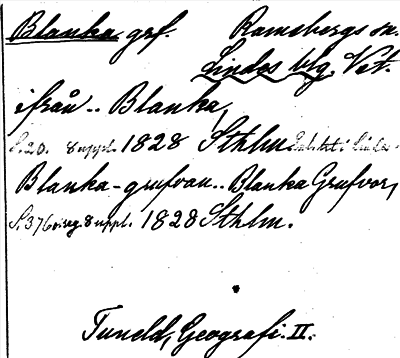 Blanka grf. Ramsbergs sn.
Lindes blg. Vst.
ifrån .. Blanka,
S. 20. 8 uppl. 1828 Sthlm
Blanka-grufvan .. Blanka Grufvor,
S. 376 8 uppl. 1828 Sthlm.
Tuneld, Geografi. II.